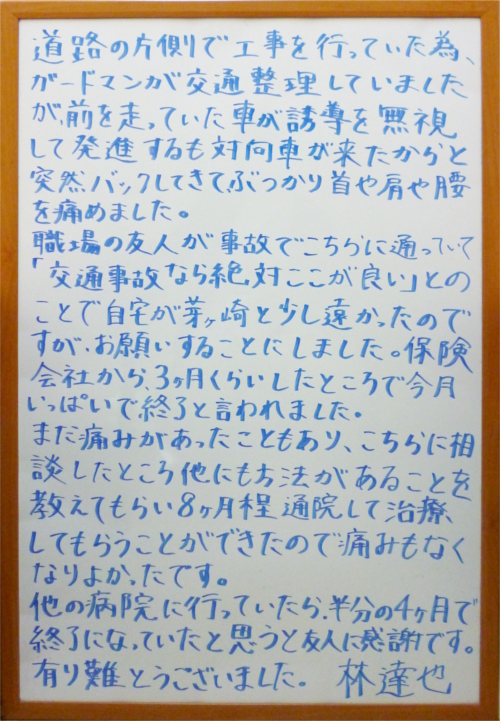 道路の片側で工事を行っていた為、
ガードマンが交通整理していました
が、前を走っていた車が誘導を無視
して発進するも対向車が来たからと
突然バックしてきて、ぶつかり首や肩や腰
を痛めました。
職場の友人が事故でこちらに通っていて
「交通事故なら絶対ここが良い」との
ことで自宅が茅ヶ崎と少し遠かったので
すが、お願いすることにしました。保険
会社から、3ヶ月くらいしたところで今月
いっぱいで終了と言われました。
まだ痛みがあったこともあり、こちらに相
談したところ他にも方法があることを
教えてもらい8ヶ月程通院して治療
してもらうことができたので痛みもなく
なりよかったです。
他の病院に行っていたら、半分の4ヶ月で
終了になっていたと思うと友人に感謝です。
有り難とうございました。 林達也